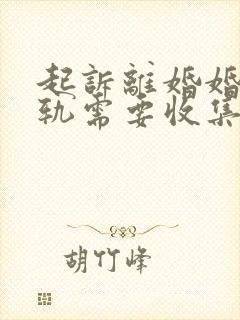 起訴離婚婚
軌需要收集
胡竹峰